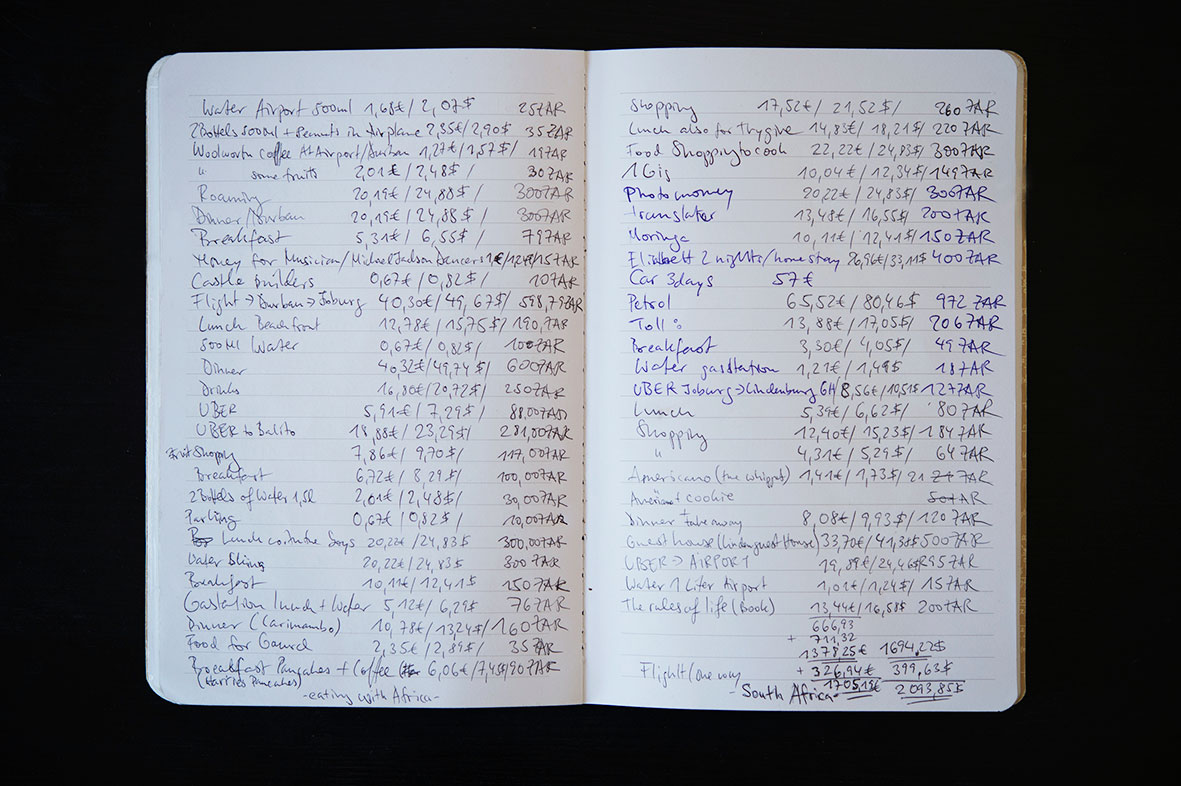 Water Airport 500ml 1,68€ / 2,07$ 25ZAR
2Bottels 500ml + Peanuts in Airplane 2,35€ / 2,90$ 35ZAR
Woolworth coffee At Airport/Durban 1,27€ / 1,57$ / 19ZAR
" some fruits 2,01€ / 2,48$ / 30ZAR
Roaming 20,19€ / 24,88$ / 300ZAR
Dinner/Durban 20,19€ / 24,88$ / 300ZAR
Breakfast 5,31€ / 6,55$ / 79ZAR
Money for Musician/Michael Jackson Dancers 1€ / 15ZAR
Castle builders 0,67€ / 0,82$ / 10ZAR
Flight → Durban → Joburg 40,30€ / 49,67$ / 598,79ZAR
Lunch Beachfront 12,78€ / 15,75$ / 190,ZAR
500Ml Water 0,67€ / 0,82$ / 10ZAR
Dinner 40,32€ / 49,74$ / 600ZAR
Drinks 16,80€ / 20,72$ / 250ZAR
UBER 5,91€ / 7,29$ / 88,00ZAR
UBER to Balito 18,88€ / 23,29$ / 281,00ZAR
Fruit Shopping 7,86€ / 9,70$ / 117,00ZAR
Breakfast 6,72€ / 8,29$ / 100,00ZAR
2Bottels of Water 1,5l 2,01€ / 2,48$ / 30,00ZAR
Parking 0,67€ / 0,82$ / 10,00ZAR
Lunch the boys 20,22€ / 24,83$ 300,00ZAR
20,22€ / 24,83$ 300ZAR
Breakfast 10,11€ / 12,41$ 150ZAR
Gastation lunch + Water 5,12€ / 6,29$ 76ZAR
Dinner (Carimambo) 10,78€ / 13,24$ / 160ZAR
Food for 2,35€ / 2,89$ / 35ZAR
Breakfast Pancakes + Coffee 6,06€ / 7,45$ / 90ZAR
(Harties Pancakes)
-eating with Africa-
Shopping 17,52€ / 21,52$ / 260 ZAR
Lunch also for Thygive 14,83€ / 18,21$ / 220 ZAR
Food Shopping to cook 22,22€ / 24,83$ / 300ZAR
1Gig 10,04€ / 12,34$ / 149ZAR
Photo money 20,22€ / 24,83$ / 300ZAR
translater 13,48€ / 16,55$ / 200ZAR
Moringa 10,11€ / 12,41$ / 150ZAR
2 nights/homestay 26,96€ / 33,11$ 400ZAR
Car 3days 57€
Petrol 65,52€ / 80,46$ 972 ZAR
Toll 13,88€ / 17,05$ / 206ZAR
Breakfast 3,30€ / 4,05$ / 49ZAR
Water gasstation 1,21€ / 1,49$ 18ZAR
UBER Joburg → Lindenburg GH 8,56€ / 10,51$ 127ZAR
Lunch 5,39€ / 6,62$ / 80ZAR
Shopping 12,40€ / 15,23$ / 184ZAR
" 4,31€ / 5,29$ / 64ZAR
Americano (the whippet) 1,41€ / 1,73$ / 21 ZAR
+ cookie 50ZAR
Dinner + takeaway 8,08€ / 9,93$ / 120ZAR
Guest house (Linden guest House) 33,70€ / 41,38$ 500ZAR
UBER → AIRPORT 19,89€ / 24,46$ 295ZAR
Water 1 Liter Airport 1,01€ / 1,24$ / 15ZAR
The rules of life (Book) 13,44€ / 16,58$ 200ZAR
666,93
+ 711,32
1378,25€ 1694,22$
Flight/one way + 326,94€ 399,63$
1705,19€ 2093,85$
- South Africa-